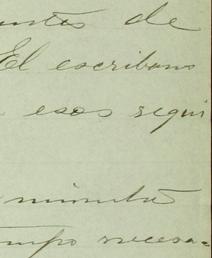 untes de
El escribano
esos segui
minuta
empo necesa=